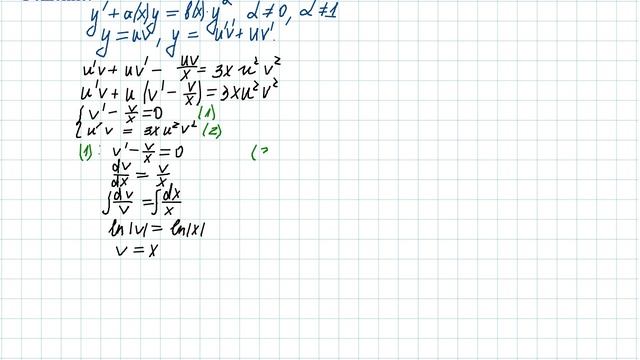 y' + a(x)y = b(x)·y^α α≠0, α≠1
y = uv, y = u'v + uv'
u'v + uv' - uv/x = 3x u² v²
u'v + u (v' - v/x) = 3xu² v²
{ v' - v/x = 0 (1)
{ u'v = 3xu²v² (2)
(1): v' - v/x = 0
dv/dx = v/x
∫ dv/v = ∫ dx/x
ln|v| = ln|x|
v = x